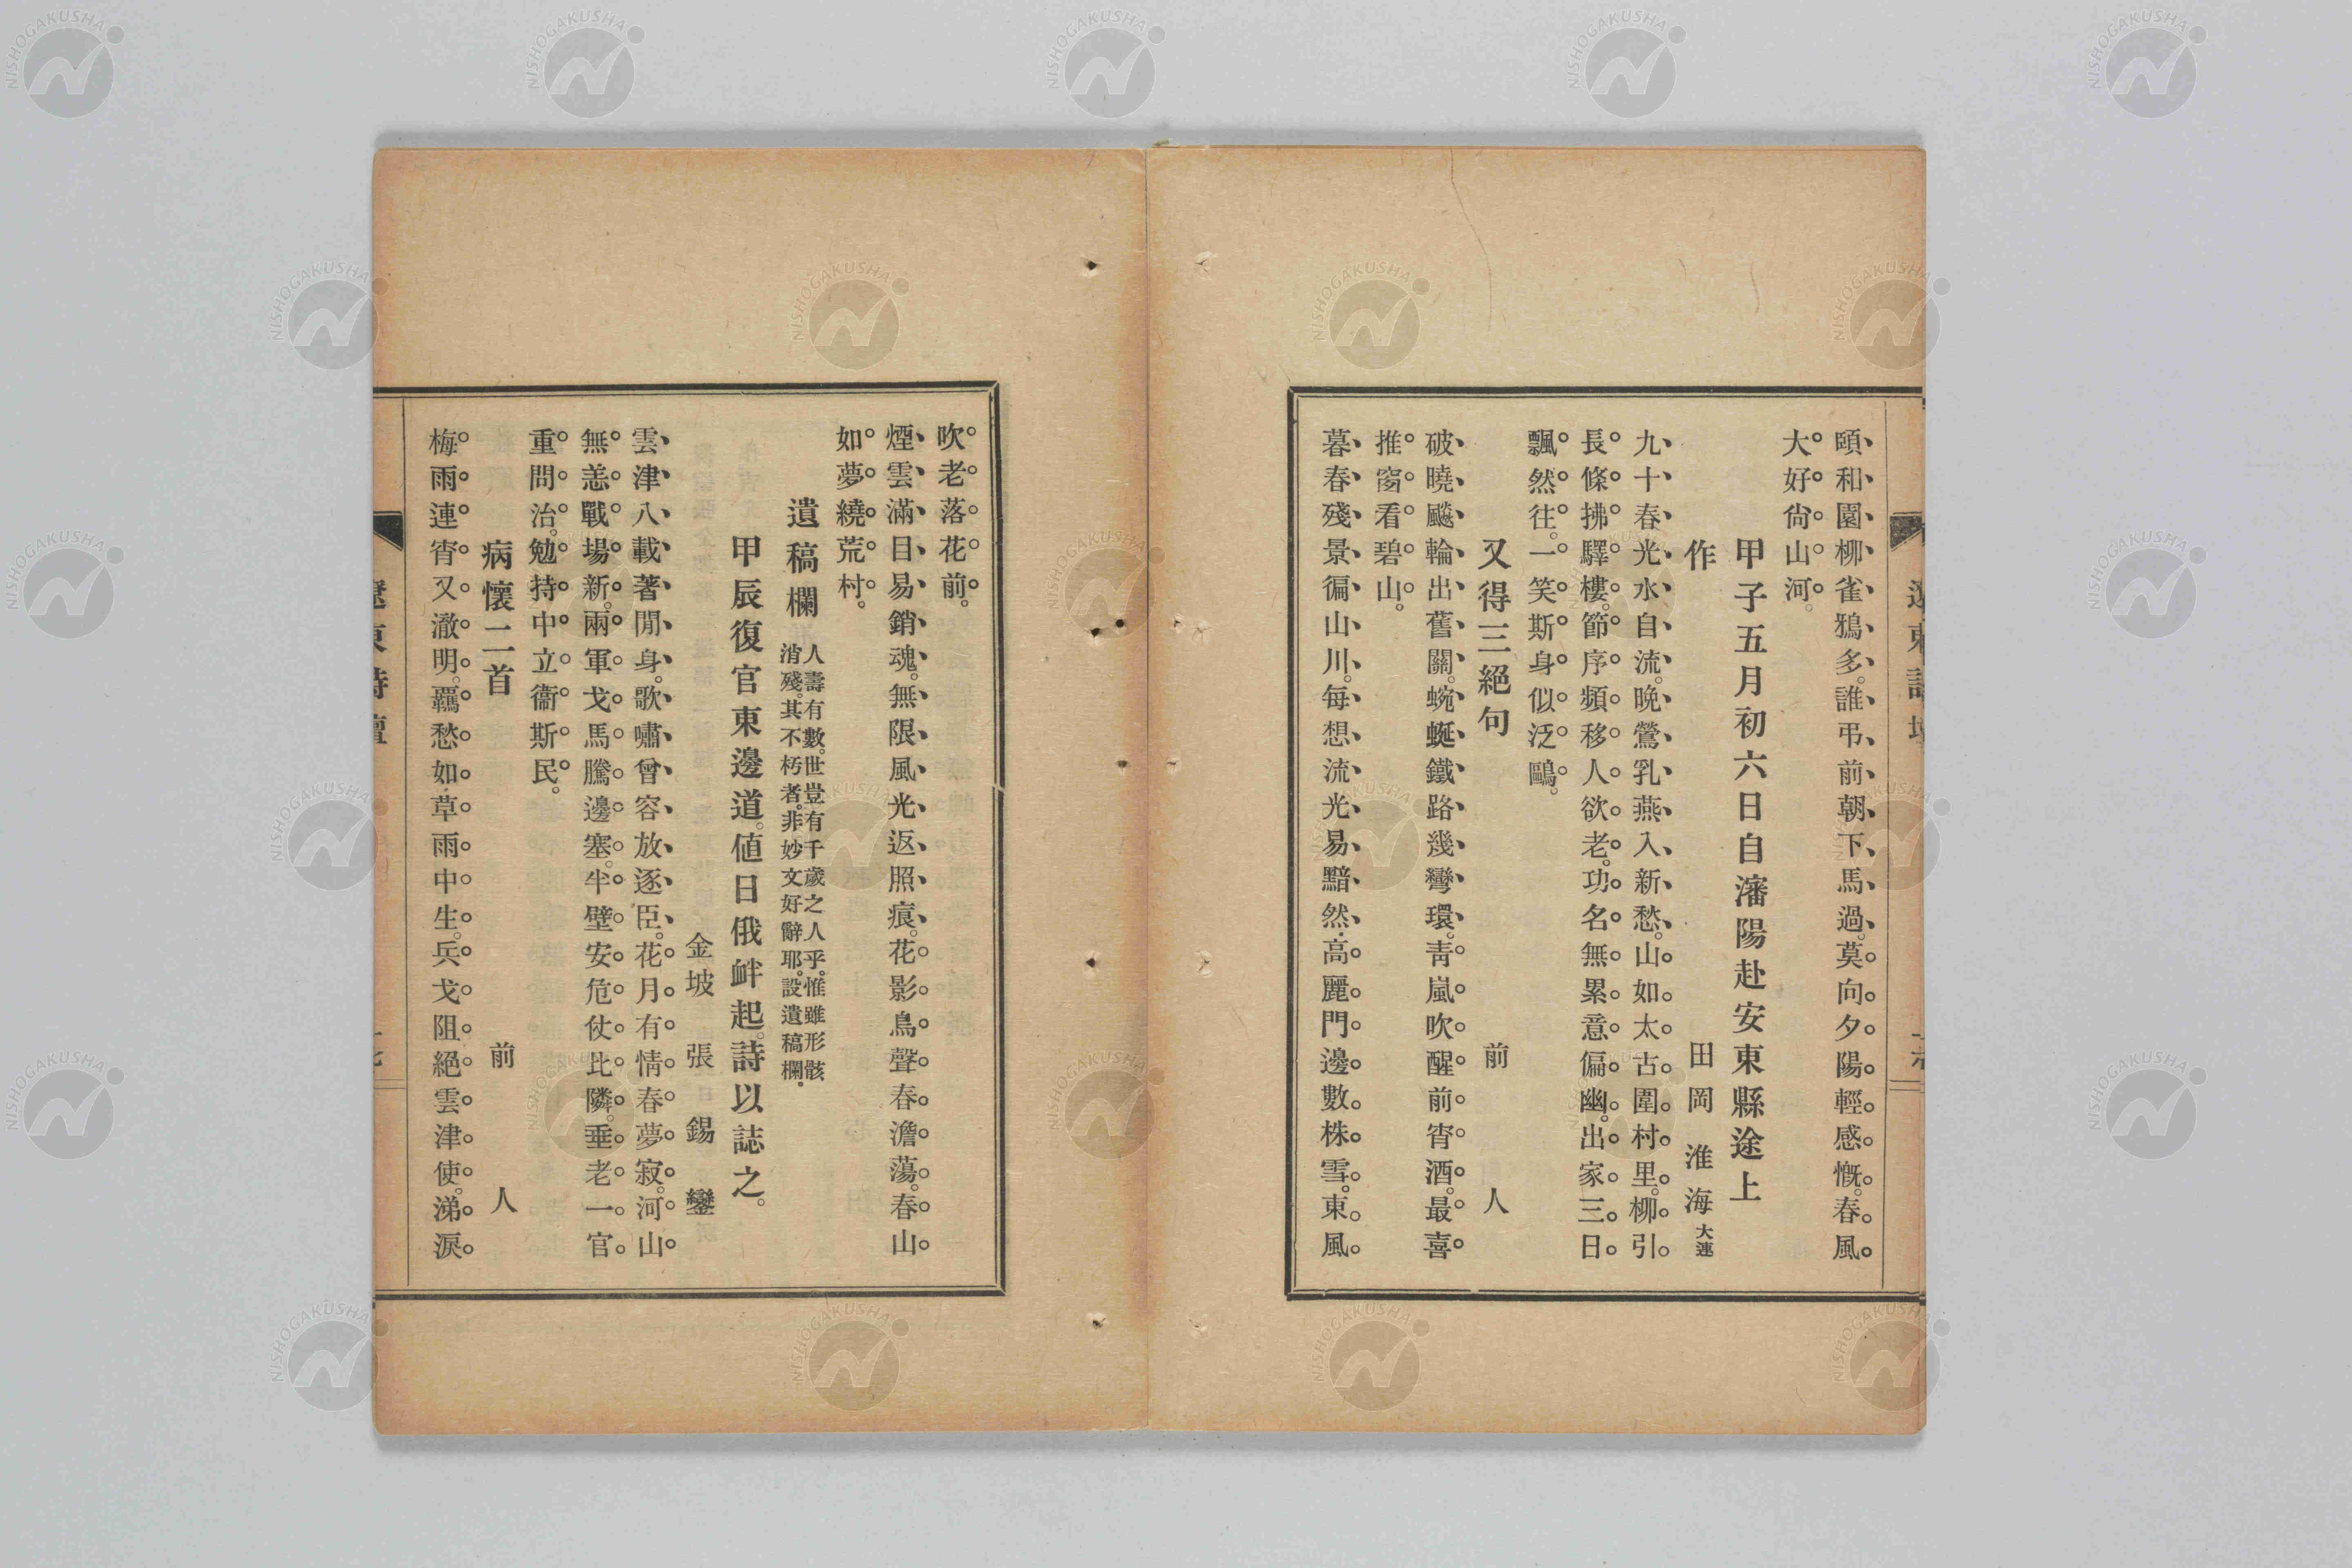 頤和園柳雀鴉多。誰弔前朝下馬過。莫向夕陽輕感慨。春風
大好尙山河。
甲子五月初六日自瀋陽赴安東縣途上
作　田岡淮海大連
九十春光水自流。晚鶯乳燕入新愁。山如太古圍村里。柳引
長條拂驛樓。節序頻移人欲老。功名無累意偏幽。出家三日
飄然往。一笑斯身似泛鷗。
又得三絕句　前人
破曉飈輪出舊關。蜿蜒鐵路幾彎環。靑嵐吹醒前宵酒。最喜
推窗看碧山。
暮春殘景徧山川。每想流光易黯然。高麗門邊數株雪。東風
吹老落花前。
煙雲滿目易銷魂。無限風光返照痕。花影鳥聲春澹蕩。春山
如夢繞荒村。
遺稿欄　人壽有數。世豈有千歲之人乎。惟雖形骸
消殘。其不朽者。非妙文好辭耶。設遺稿欄。
甲辰復官東邊道。値日俄衅起。詩以誌之。
金坡　張錫鑾
雲津八載著閒身。歌嘯曾容放逐臣。花月有情春夢寂。河山
無恙戰場新。兩軍戈馬騰邊塞。半壁安危仗比隣。垂老一官
重問治。勉持中立衞斯民。
病懷二首　前人
梅雨連宵又澈明。羈愁如草雨中生。兵戈阻絕雲津使。涕淚
遼東詩壇
NISHOGAKUSHA